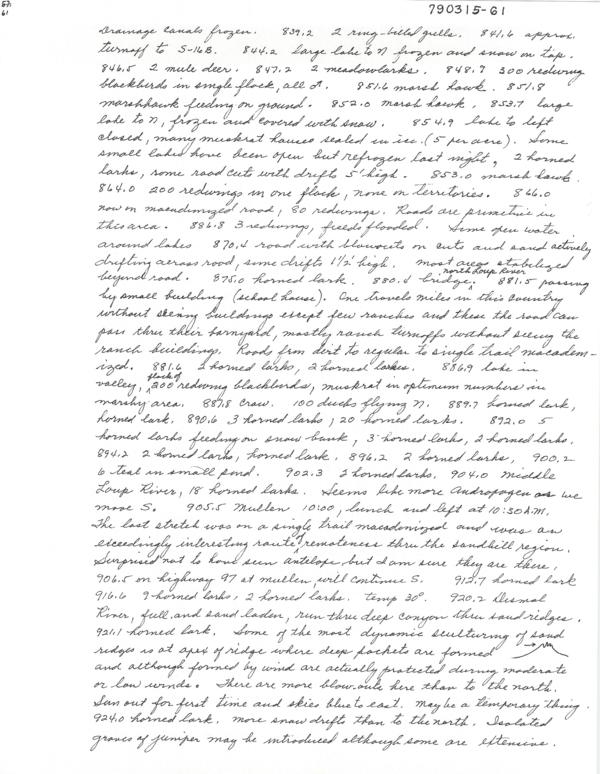 57
61
790315-61
Drainage canals frozen. 839.2 2 ring-billed gulls. 841.6 approx.
turnoff to S-16B. 844.2 large lake to N frozen and snow on top.
846.5 2 mule deer. 847.2 2 meadowlarks. 848.7 300 redwing
blackbirds in single flock, all ♂. 851.6 marsh hawk. 851.8
marshhawk feeding on ground. 852.0 marsh hawk. 853.7 large
lake to N, frozen and covered with snow. 854.9 lake to left
closed, many muskrat houses sealed in ice. (5 per acre). Some
small lakes have been open but refrozen last night, 2 horned
larks, some road cuts with drifts 5' high. 853.0 marsh hawk.
864.0 200 redwings in one flock, none on territories. 866.0
now on macadmized road, 80 redwings. Roads are primitive in
this area. 886.8 3 redwings, fields flooded. Some open water
around lakes 870.4 road with blowouts on cuts and sand actively
drifting across road, some drifts 1 1/2' high. most areas stabilized
beyond road. 875.0 horned lark. 880.4 bridge, North Loup River 881.5 passing
by small building (school house). One travels miles in this country
without seeing buildings except few ranches and these the road can
pass thru their barnyard, mostly ranch turnoffs without seeing the
ranch buildings. Roads from dirt to regular to single trail macadem-
ized. 881.6 2 horned larks, 2 horned larks. 886.9 lake in
valley, flock of 200 redwing blackbirds, muskrat in optimum numbers in
marshy area. 887.8 crow. 100 ducks flying N. 889.7 horned lark,
horned lark. 890.6 3 horned larks; 20 horned larks. 892.0 5
horned larks feeding on snow bank, 3 horned larks, 2 horned larks.
894.2 2 horned larks, horned lark. 896.2 2 horned larks, 900.2
6 teal in small pond. 902.3 2 horned larks. 904.0 Middle
Loup River, 18 horned larks. Seems like more Andropogen as we
move S. 905.5 Mullen 10:00, lunch and left at 10:30 A.M.
The last stretch was on a single trail macadonized and was an
exceedingly interesting route of remoteness thru the sandhill region.
Surprised not to have seen antelope but I am sure they are there.
906.5 on highway 97 at mullen, will continue S. 912.7 horned lark
916.6 9 horned larks, 2 horned larks. temp 30°. 920.2 Dismal
River, full and sand laden, run thru deep canyon thru sand ridges.
921.1 horned lark. Some of the most dynamic sculturing of sand
ridges is at apex of ridge where deep pockets are formed
and although formed by wind are actually protected during moderate
or low winds. There are more blowouts here than to the north.
Sun out for first time and skies blue to east. may be a temporary thing.
924.0 horned lark. more snow drifts than to the north. Isolated
groves of juniper may be introduced although some are extensive.